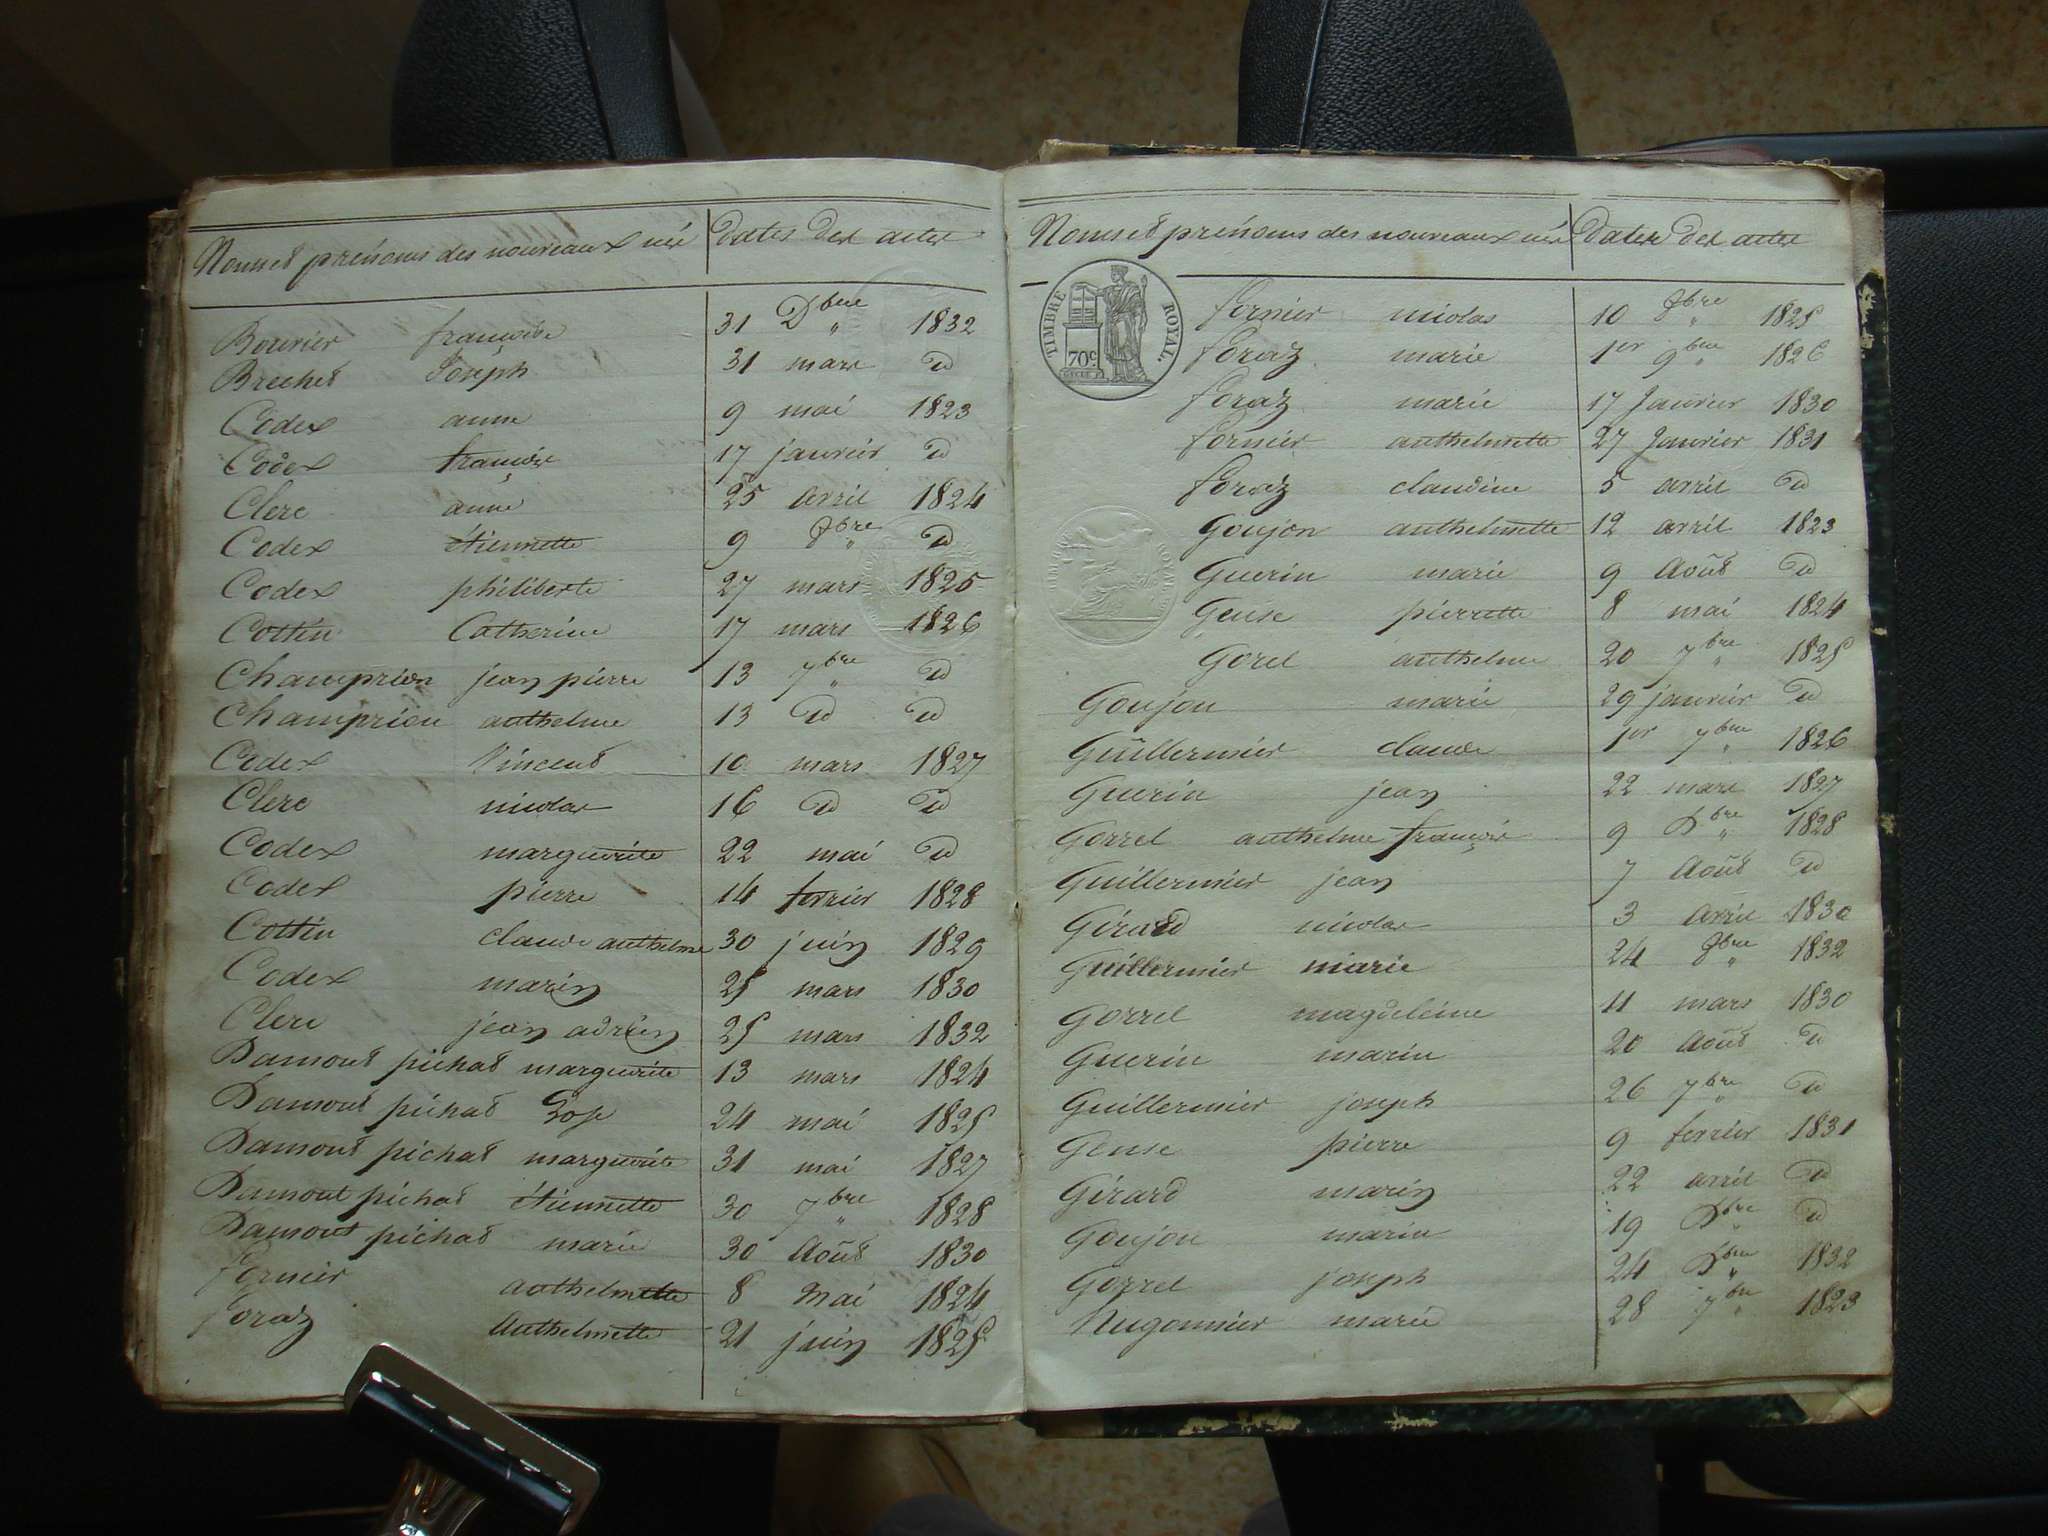 Noms et prénoms des nouveaux nés Dates des actes
Bouvier françoise 31 Dbre " 1832
Brechet Joseph 31 mars D
Codex anne 9 mai 1823
Codex françoise 17 janvier D
Clerc anne 25 avril 1824
Codex étiennette 9 8bre " D
Codex philiberte 27 mars 1825
Cottin Catherine 17 mars 1826
Champrion jean pierre 13 7bre " D
Champrion anthelme 13 D D
Codex Vincent 10 mars 1827
Clerc nicolas 16 D D
Codex marguerite 22 mai D
Codex pierre 14 fevrier 1828
Cottin claude anthelme 30 juin 1829
Codex marin 25 mars 1830
Clerc jean adrien 25 mars 1832
Damont pichat marguerite 13 mars 1824
Damont pichat Rose 24 mai 1825
Damont pichat marguerite 31 mai 1827
Damont pichat étiennette 30 7bre " 1828
Damont pichat marie 30 Août 1830
fornier anthelmette 8 Mai 1824
foraz Anthelmette 21 juin 1825
Noms et prénoms des nouveaux nés Dates des actes
TIMBRE ROYAL.
70c
fornier nicolas 10 8bre " 1825
foraz marie 1er 9bre " 1826
foraz marie 17 Janvier 1830
fornier anthelmette 27 Janvier 1831
foraz claudine 5 avril D
Goujon anthelmette 12 avril 1823
Guerin marie 9 Août D
Gense pierrette 8 mai 1824
Gorel anthelme 20 7bre " 1825
Goujon marie 29 janvier D
Guillermier claude 1er 7bre " 1826
Guerin jean 22 mars 1827
Gorrel anthelme françois 9 Dbre " 1828
Guillermier jean 7 Août D
Girard nicolas 3 Avril 1830
Guillermier marie 24 8bre " 1832
Gorrel magdeleine 11 mars 1830
Guerin marin 20 Août D
Guillermier joseph 26 7bre " D
Gense pierre 9 fevrier 1831
Girard marin 22 avril D
Goujon marin 19 Dbre " D
Gorrel joseph 24 Dbre " 1832
Hugonnier marie 28 7bre " 1823